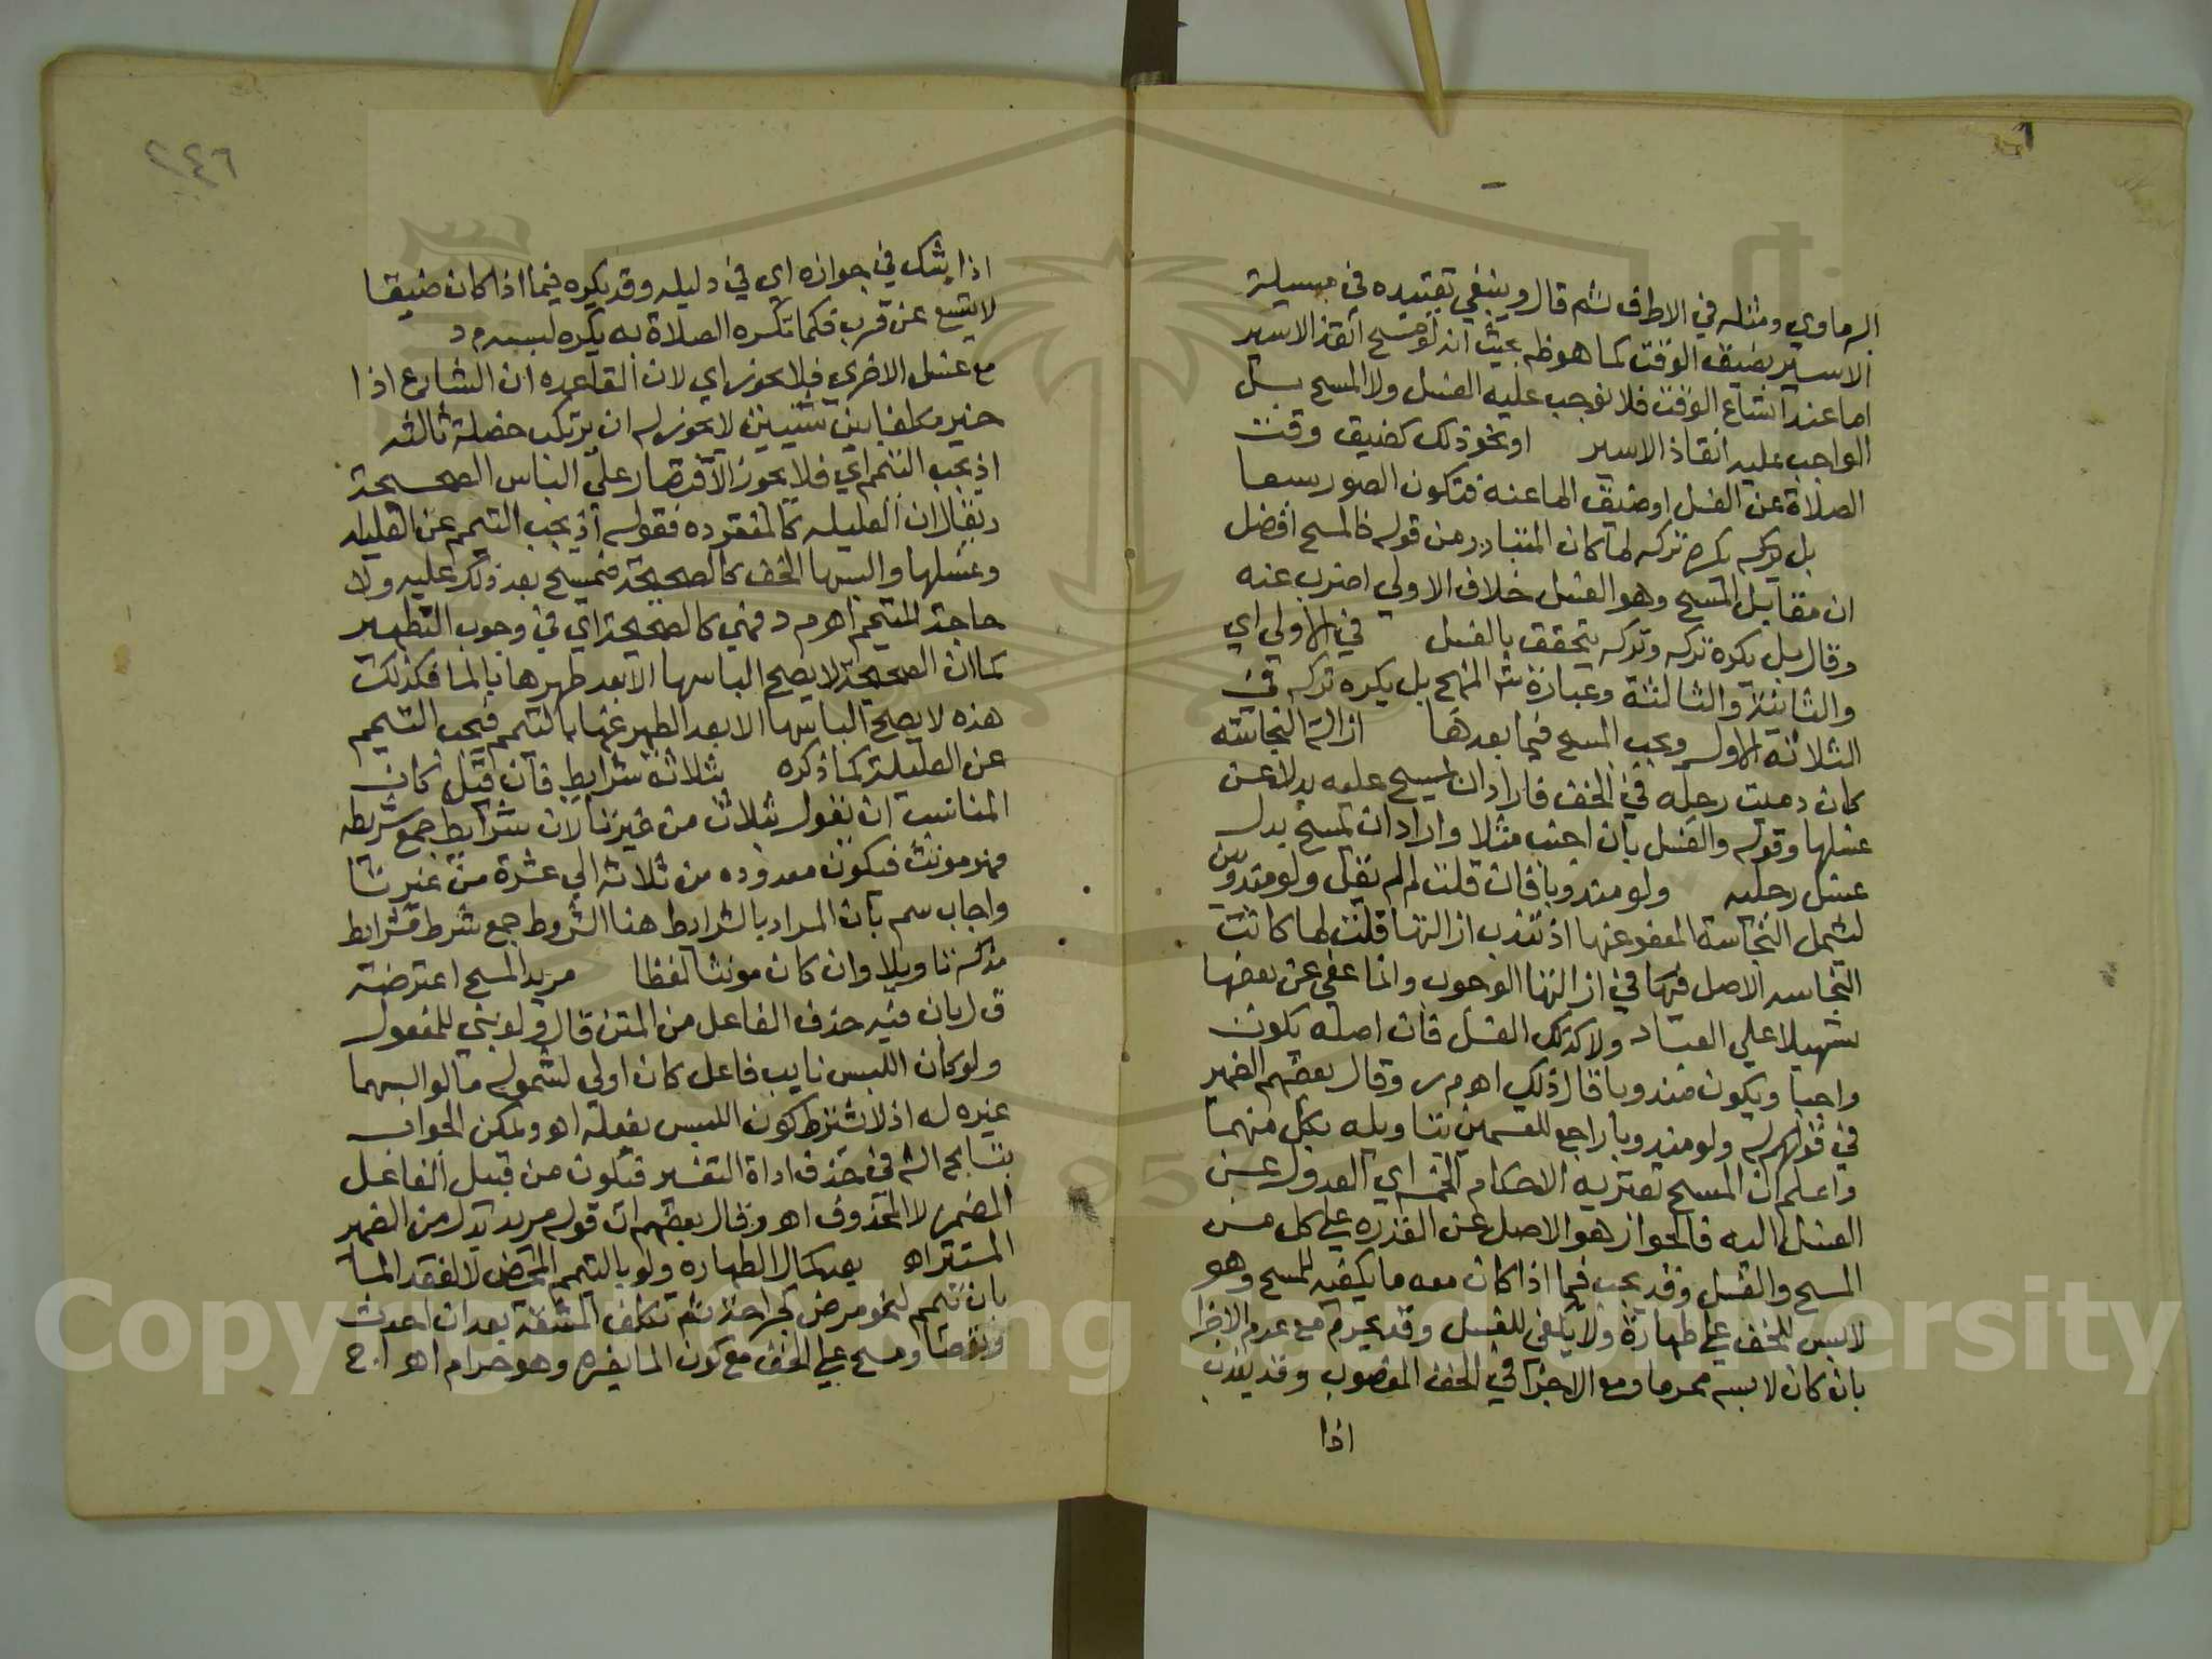 الرماوي ومثله في الاطرف شم قال وينبغي تقييده في مسيلة
الاسير بضيق الوقت كما هو ظم بحيث انه لو مسح انقذ الاسير
اما عند اتساع الوقت فلا نوجب عليه الغسل ولا المسح بل
الواجب عليه انقاذ الاسير او نحو ذلك كضيق وقت
الصلاة عن الغسل او ضيق الماعنه فتكون الصور سبعا
بل يكره تركه لما كان المتبادر من قوله فالمسح افضل
ان مقابل المسح وهو الغسل خلاف الاولي اضرب عنه
وقال بل يكره تركه وتركه يتحقق بالغسل في الاولي اي
والثانية والثالثة وعبارة شه المنهج بل يكره تركه في
الثلاثة الاول ويجب المسح فيما بعدها ازالة النجاسة
كان دميت رجله في الخف فاراد ان يمسح عليه بدلا عن
غسلها وقوله والغسل بان اجنب مثلا واراد ان يمسح بدل
غسل رجليه ولو مندوبا فان قلت لم لم يقل ولو مندوبين
ليشمل النجاسة المعفو عنها اذ تندب ازالتها قلت لما كانت
النجاسه الاصل فيها في ازالتها الوجوب وانما عفي عن بعضها
تسهيلا علي العباد ولا كذلك الغسل فان اصله يكون
واجبا ويكون مندوبا قال ذلك اهـ م ر وقال بعضهم الضمير
في قولهم له ولو مندوبا راجع للقسمين بتاويله بكل منهما
واعلم ان المسح تعتريه الاحكام الخمسه اي العدول عن
الغسل اليه فالجواز هو الاصل عن القدره علي كل من
المسح والغسل وقد يجب فيما اذا كان معه ما يكفيه للمسح وهو
لابس للخف علي طهارة ولا يكفي للغسل وقد يحرم مع عدم الاجزا
بان كان لابسه محرما ومع الاجزا في الخف المغصوب وقد يندب
اذا
٢٤٦
اذا شك في جوازه اي في دليله وقد يكره فيما اذا كان ضيقا
لا يتسع عن قرب فكما تكره الصلاة به يكره لبسه م د
مع غسل الاخري فلا يجوز اي لان القاعده ان الشارع اذا
خير مكلفا بين شيئين لا يجوز له ان يرتكب خصلة ثالثه
اذ يجب التيمم اي فلا يجوز الاقتصار علي الباس الصحيحة
ويقال ان العليله كالمفقوده فقوله اذ يجب التيمم عن العليله
وغسلها والبسها الخف كالصحيحة فيمسح بعد ذلك عليه ولا
حاجة للتيمم اهـ م د فهي كالصحيحة اي في وجوب التطهير
كما ان الصحيحة لا يصح الباسها الا بعد طهرها بالما فكذلك
هذه لا يصح الباسها الا بعد الطهر عنها بالتيمم فيجب التيمم
عن العليلة كما ذكره بثلاثة شرايط فان قيل كان
المناسب ان يقول بثلاث من غير تا لان شرايط جمع شريطه
فهو مونث فيكون معدوده من ثلاثه الي عشرة من غير تا
واجاب سم بان المراد بالشرايط هنا الشروط جمع شرط فشرايط
مذكر تاويلا وان كان مونثا لفظا مريد المسح اعترضه
ق ل بان فيه حذف الفاعل من المتن قال ولو بني للمفعول
ولو كان اللبس نايب فاعل كان اولي لشموله ما لو البسهما
غيره له اذ لا يشترط كون اللبس بفعله اهـ ويمكن الجواب
بتسامح الشه في حذف اداة التفسير فيكون من قبيل الفاعل
المضمر لا المحذوف اهـ وقال بعضهم ان قوله مريد بدل من الضمير
المستتر اهـ بعد كمال الطهاره ولو بالتيمم المحض لا لفقد الما
بان تيمم لنحو مرض كجراحة ثم تكلف المشقة بعد ان احدث
وتوضا ومسح علي الخف مع كون الما يضره وهو حرام اهـ ا ج